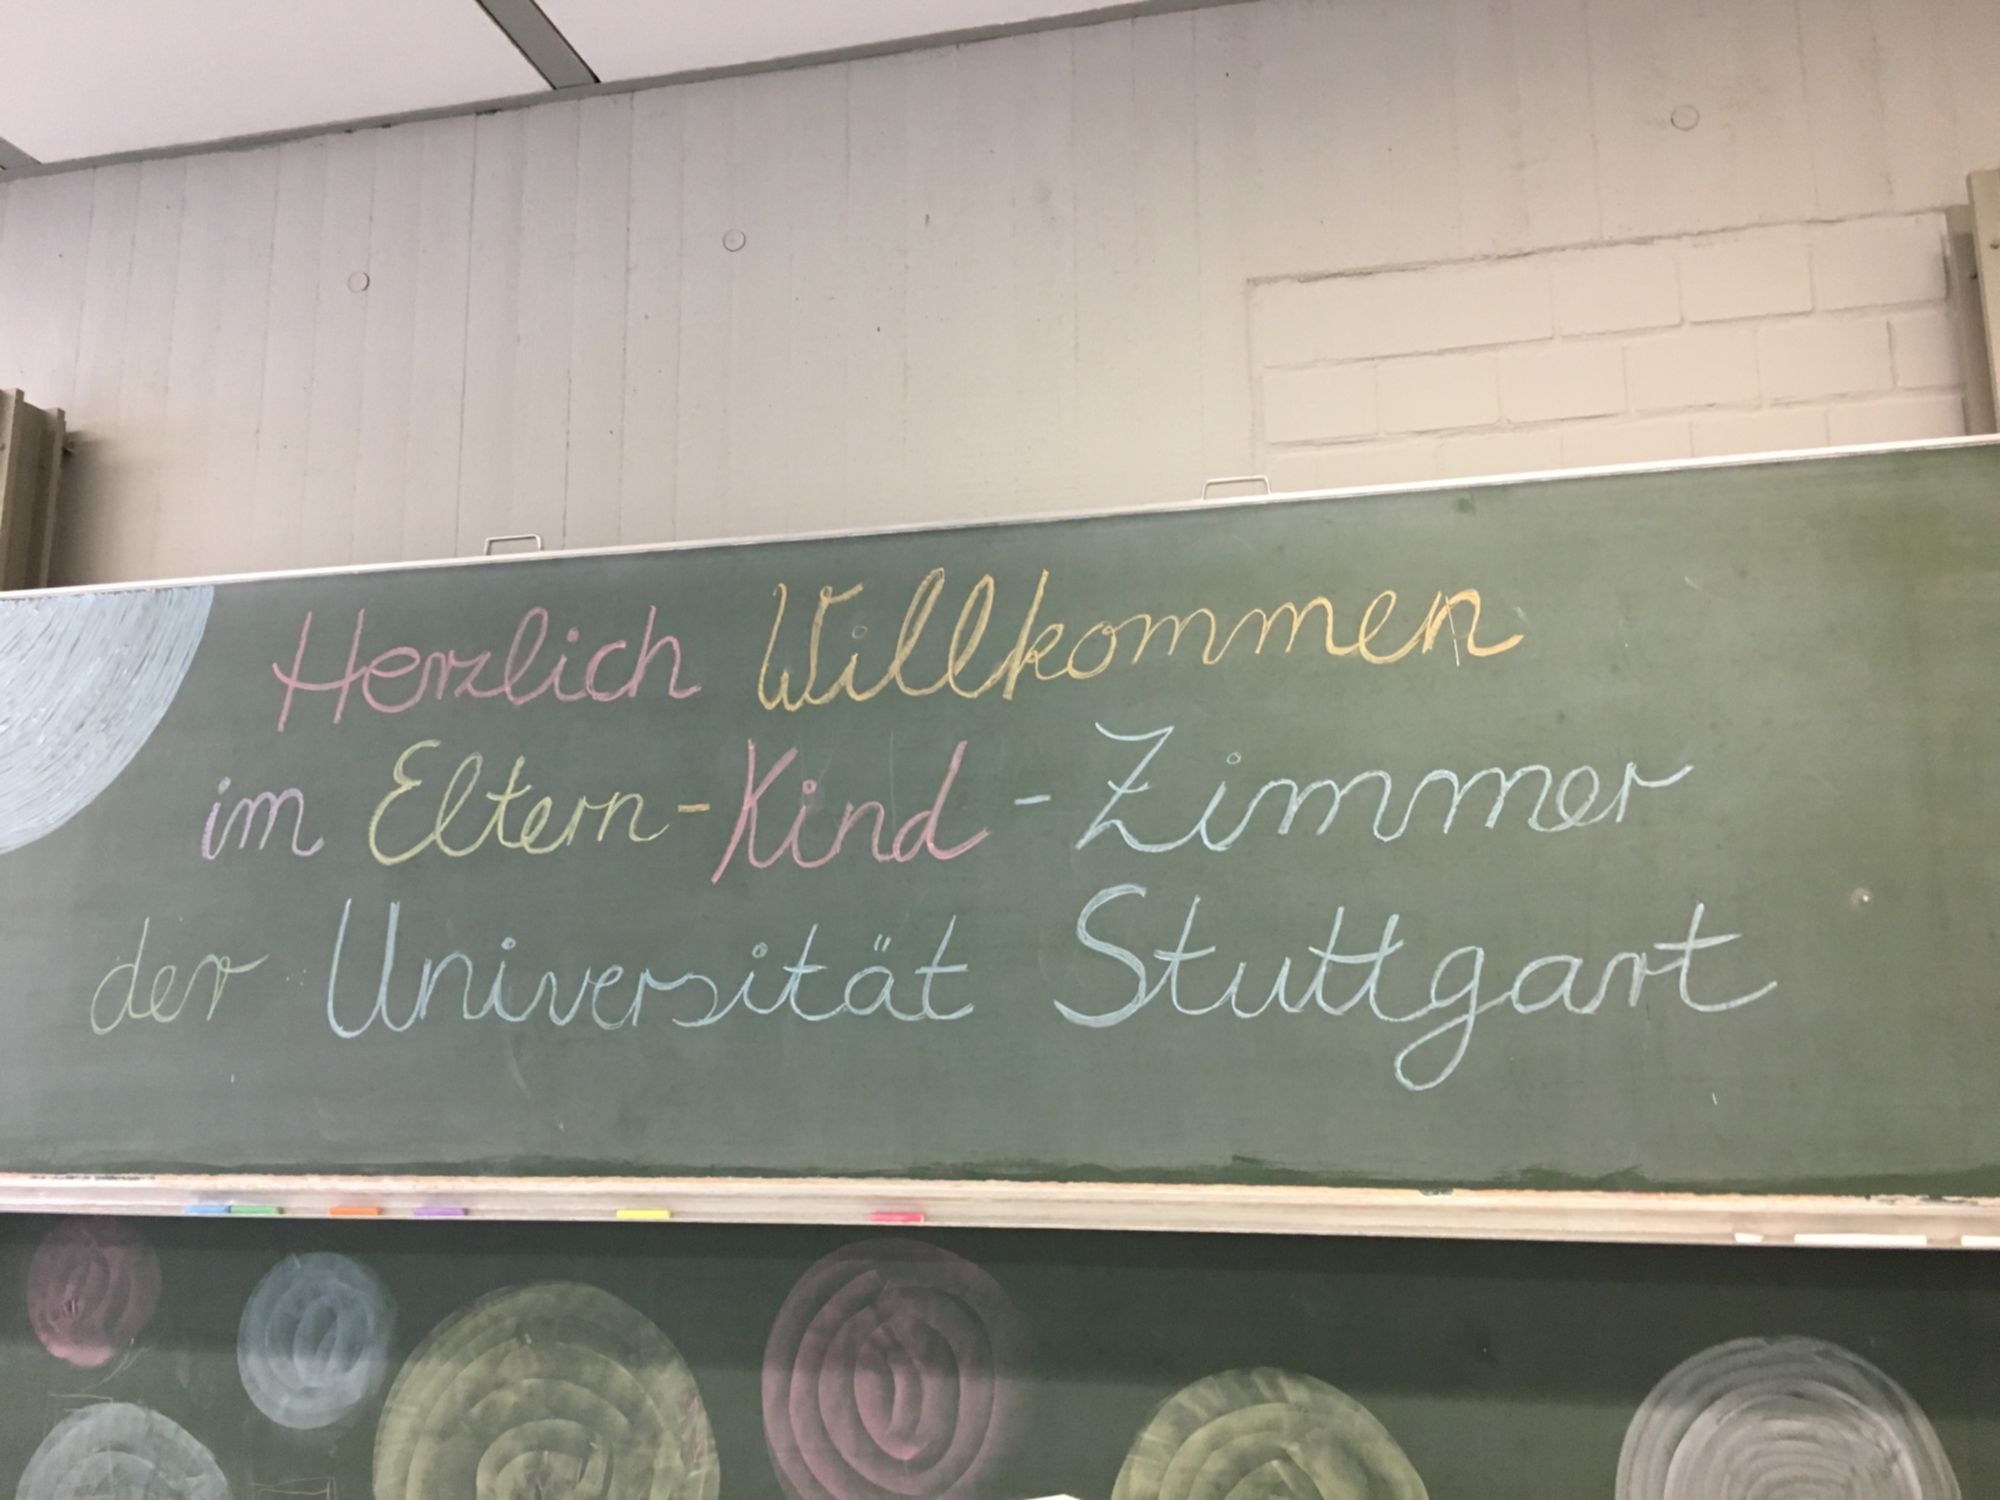 Herzlich Willkommen
im Eltern-Kind-Zimmer
der Universität Stuttgart